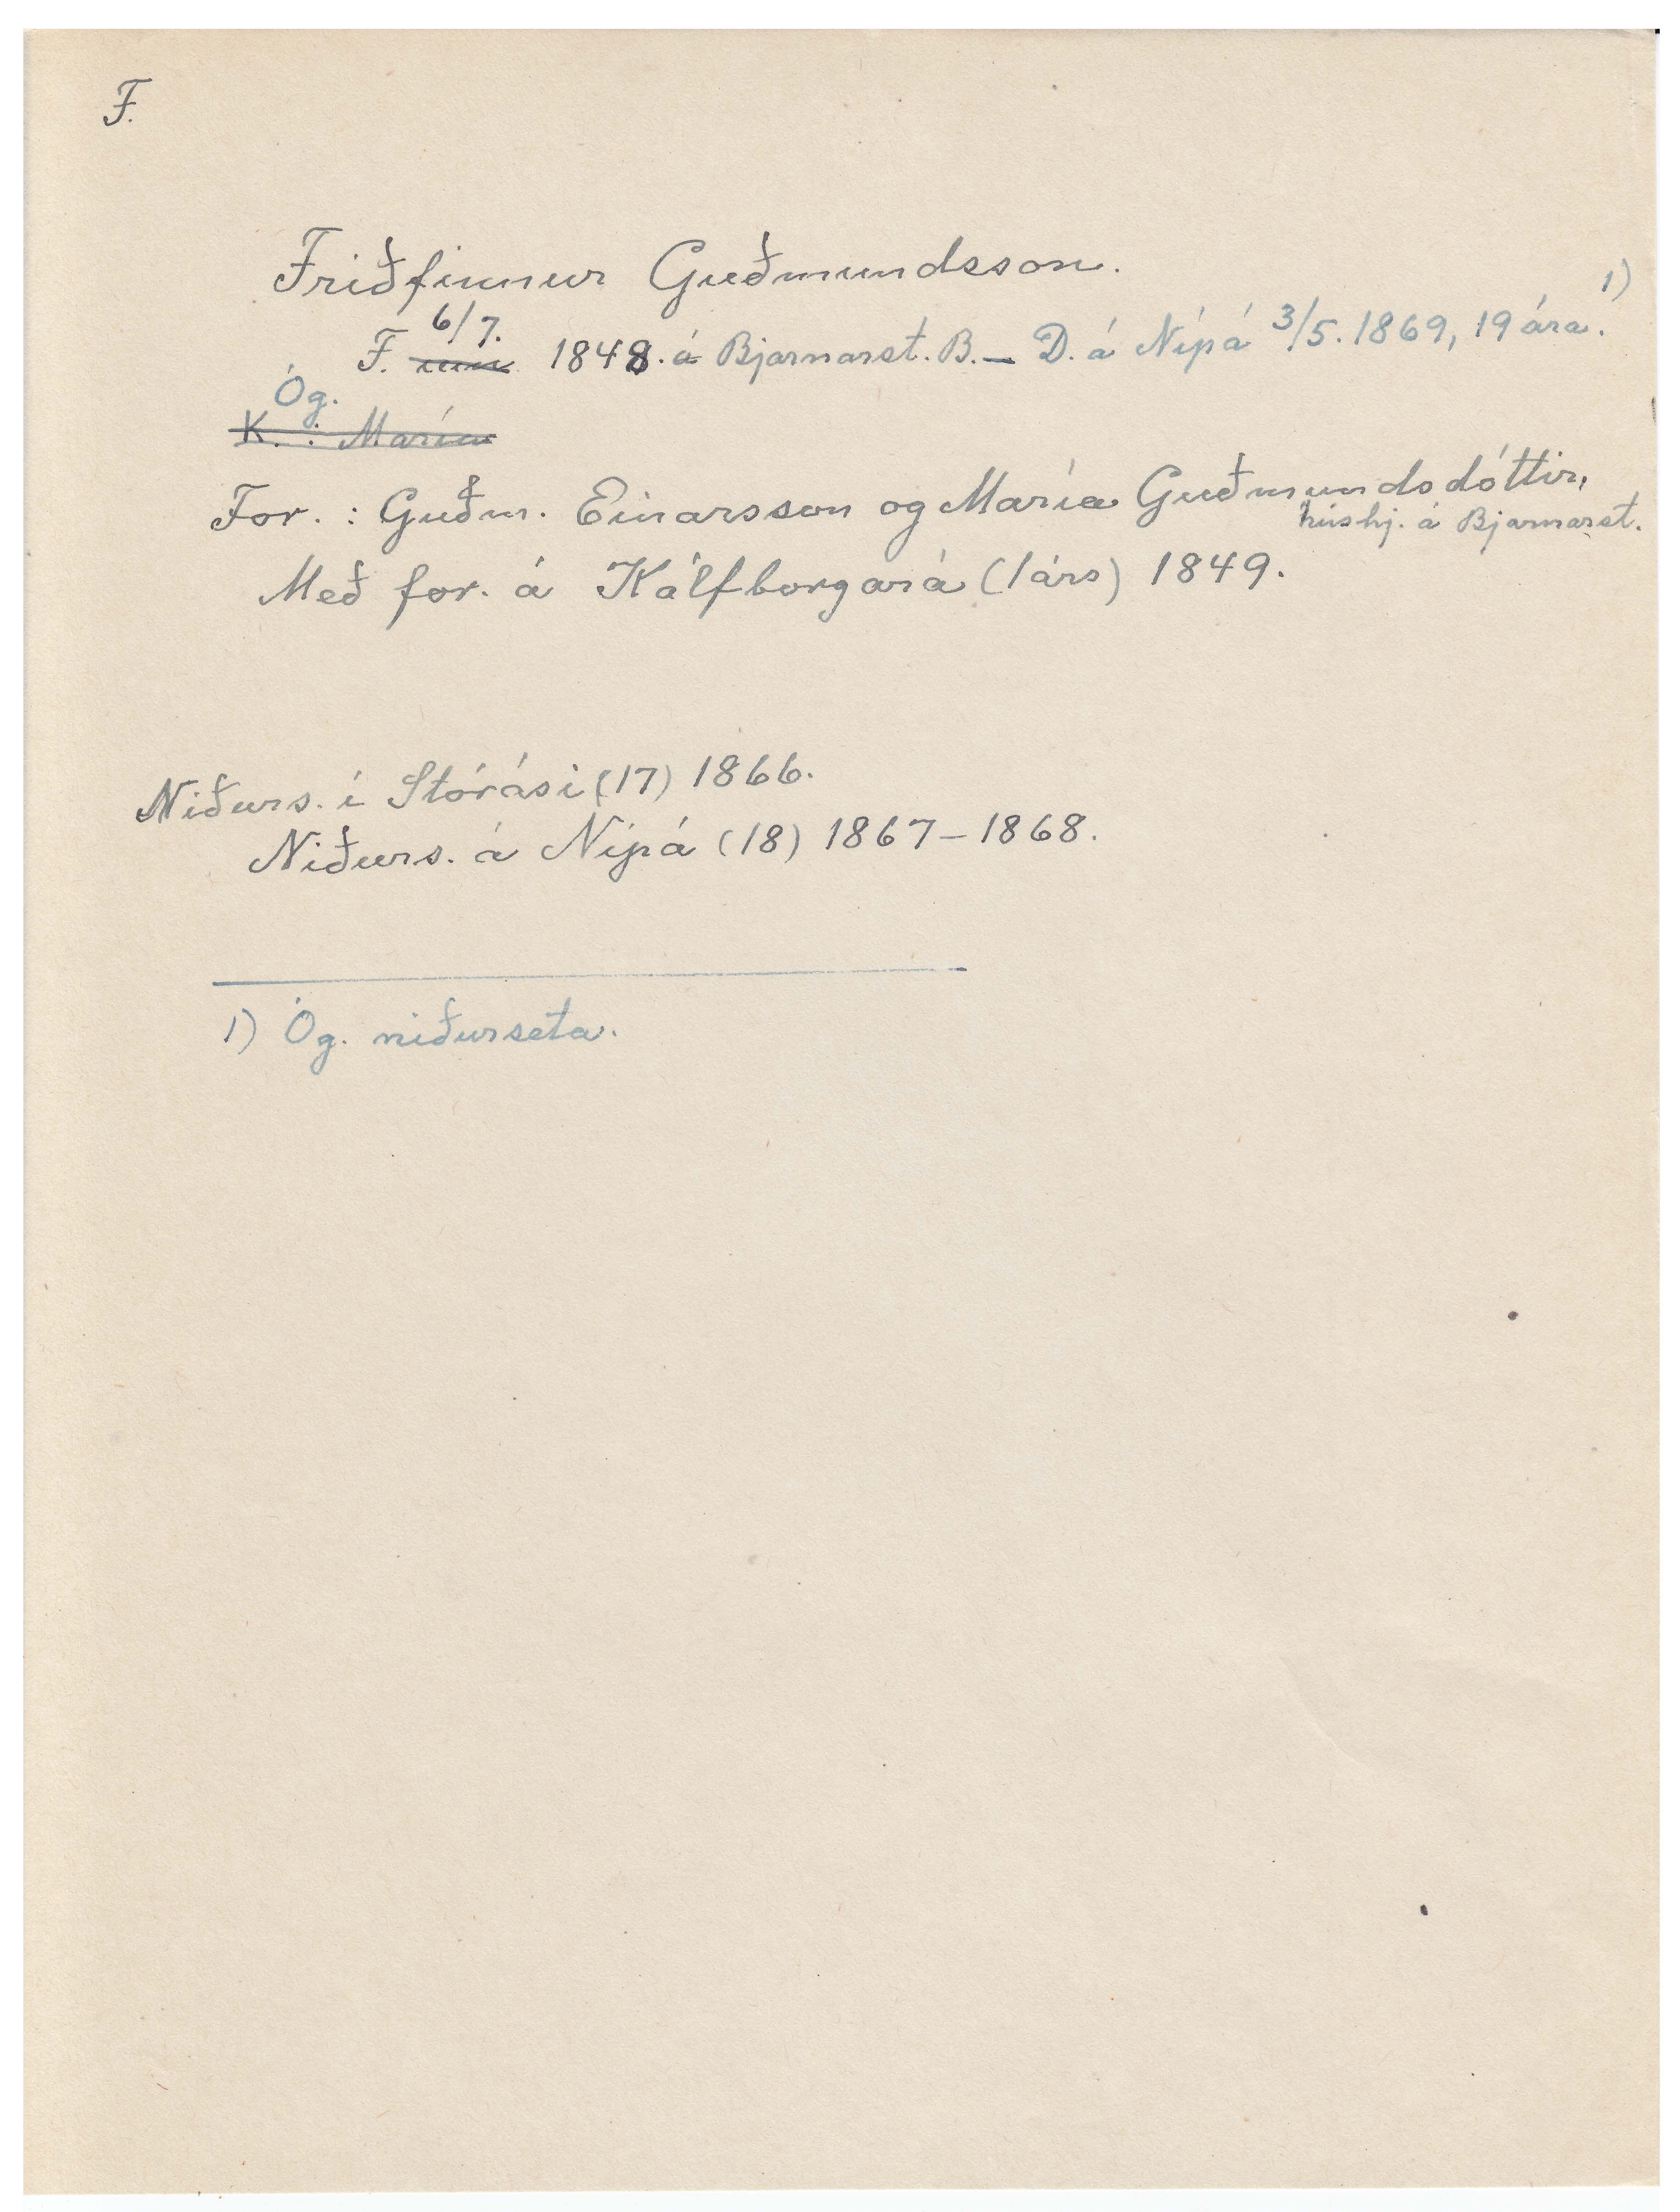 F.
Friðfinnur Guðmundsson.
F. um 6/7. 1848. á Bjarnarst. B. – D. á Nípá 3/5. 1869, 19 ára. 1)
Óg.
K. : María
For. : Guðm. Einarsson og María Guðmundsdóttir,
húshj. á Bjarnarst.
Með for. á Kálfborgará (1 árs) 1849.
Niðurs. í Stórási (17) 1866.
Niðurs. á Nípá (18) 1867–1868.
1) Óg. niðurseta.